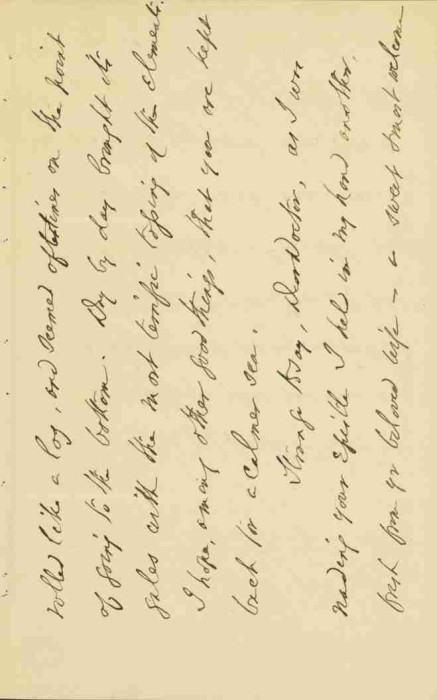 rolled like a log, and seemed oftentimes on the point
of going to the bottom. Day by day brought its
gales with the most terrific topping of the elements.
I hope, among other good things, that you are kept
back for a calmer sea.
Strange to say, Dear Doctor, as I was
reading your epistle I held in my hand another,
fresh from yr beloved wife – a sweet & most welcome